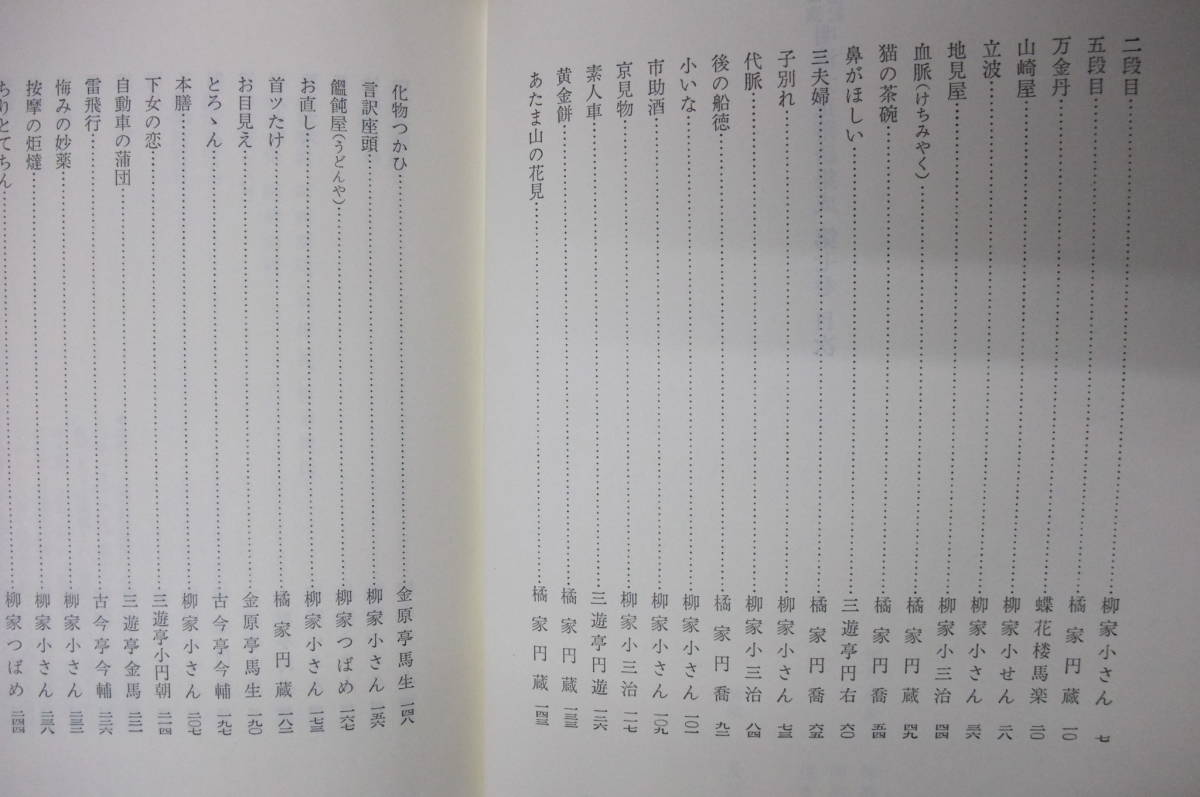 二段目……柳家小さん 七
五段目……橘家円蔵 一〇
万金丹……蝶花楼馬楽 二〇
山崎屋……柳家小せん 二八
立波……柳家小さん 三六
地見屋……柳家小三治 四四
血脈(けちみやく)……橘家円蔵 四九
猫の茶碗……橘家円喬 五四
鼻がほしい……三遊亭円右 六〇
三夫婦……橘家円喬 六五
子別れ……柳家小さん 七三
代脈……柳家小三治 八四
後の船徳……橘家円喬 九二
小いな……柳家小さん 一〇一
市助酒……柳家小さん 一〇九
京見物……柳家小三治 一一七
素人車……三遊亭円遊 一二六
黄金餅……橘家円蔵 一三三
あたま山の花見……橘家円蔵 一四三
化物つかひ……金原亭馬生 一四八
言訳座頭……柳家小さん 一五六
饂飩屋(うどんや)……柳家つばめ 一六七
お直し……柳家小さん 一七三
首ツたけ……橘家円蔵 一八二
お目見え……金原亭馬生 一九〇
とろゝん……古今亭今輔 一九七
本膳……柳家小さん 二〇七
下女の恋……三遊亭小円朝 二一四
自動車の蒲団……三遊亭金馬 二二一
雷飛行……古今亭今輔 二二六
悔みの妙薬……柳家小さん 二三二
按摩の炬燵……柳家小さん 二三八
ちりとてちん……柳家つばめ 二四四